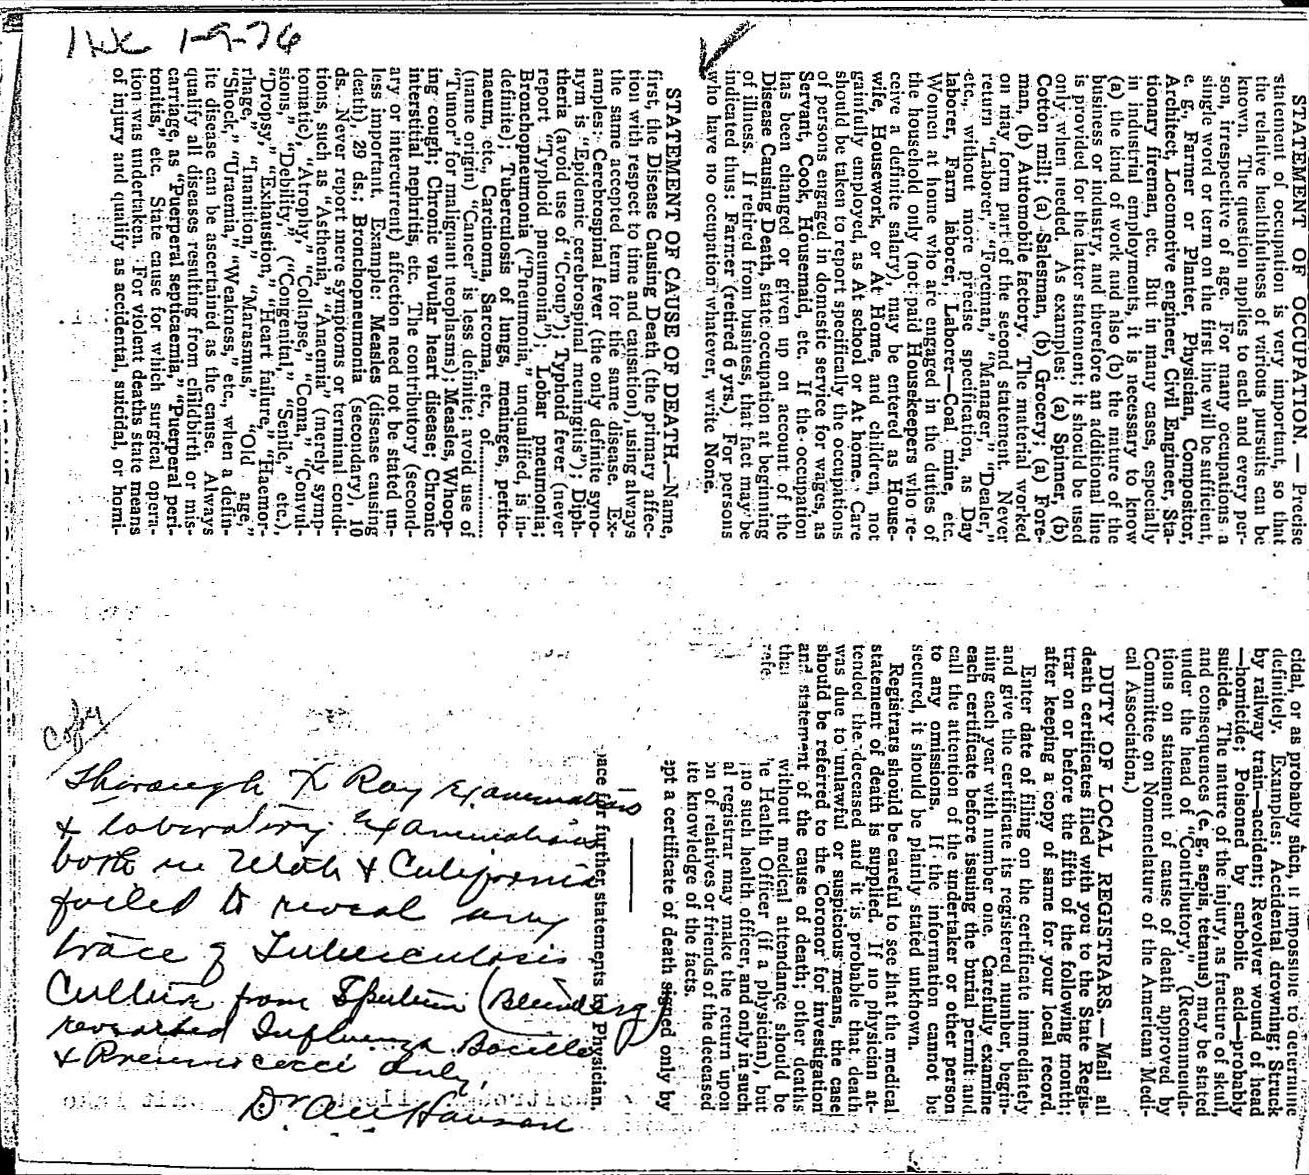 1-9-76
STATEMENT OF OCCUPATION. — Precise
statement of occupation is very important, so that
the relative healthfulness of various pursuits can be
known. The question applies to each and every per-
son, irrespective of age. For many occupations a
single word or term on the first line will be sufficient,
e. g., Farmer or Planter, Physician, Compositor,
Architect, Locomotive engineer, Civil Engineer, Sta-
tionary fireman, etc. But in many cases, especially
in industrial employments, it is necessary to know
(a) the kind of work and also (b) the nature of the
business or industry, and therefore an additional line
is provided for the latter statement; it should be used
only when needed. As examples: (a) Spinner, (b)
Cotton mill; (a) Salesman, (b) Grocery; (a) Fore-
man, (b) Automobile factory. The material worked
on may form part of the second statement. Never
return "Laborer," "Foreman," "Manager," "Dealer,"
etc., without more precise specification, as Day
laborer, Farm laborer, Laborer—Coal mine, etc.
Women at home who are engaged in the duties of
the household only (not paid Housekeepers who re-
ceive a definite salary), may be entered as House-
wife, Housework, or At Home, and children, not
gainfully employed, as At school or At home. Care
should be taken to report specifically the occupations
of persons engaged in domestic service for wages, as
Servant, Cook, Housemaid, etc. If the occupation
has been changed or given up on account of the
Disease Causing Death, state occupation at beginning
of illness. If retired from business, that fact may be
indicated thus: Farmer (retired 6 yrs.) For persons
who have no occupation whatever, write None.
STATEMENT OF CAUSE OF DEATH.—Name,
first, the Disease Causing Death (the primary affec-
tion with respect to time and causation), using always
the same accepted term for the same disease. Ex-
amples: Cerebrospinal fever (the only definite syno-
nym is "Epidemic cerebrospinal meningitis"); Diph-
theria (avoid use of "Croup"); Typhoid fever (never
report "Typhoid pneumonia"); Lobar pneumonia;
Bronchopneumonia ("Pneumonia," unqualified, is in-
definite); Tuberculosis of lungs, meninges, perito-
naeum, etc., Carcinoma, Sarcoma, etc., of............
(name origin) "Cancer" is less definite; avoid use of
"Tumor" for malignant neoplasms); Measles, Whoop-
ing cough; Chronic valvular heart disease; Chronic
interstitial nephritis, etc. The contributory (second-
ary or intercurrent) affection need not be stated un-
less important. Example: Measles (disease causing
death), 29 ds.; Bronchopneumonia (secondary), 10
ds. Never report mere symptoms or terminal condi-
tions, such as "Asthenia," "Anaemia" (merely symp-
tomatic), "Atrophy," "Collapse," "Coma," "Convul-
sions," "Debility" ("Congenital," "Senile," etc.),
"Dropsy," "Exhaustion," "Heart failure," "Haemor-
rhage," "Inanition," "Marasmus," "Old age,"
"Shock," "Uraemia," "Weakness," etc., when a defin-
ite disease can be ascertained as the cause. Always
qualify all diseases resulting from childbirth or mis-
carriage, as "Puerperal septicaemia," "Puerperal peri-
tonitis," etc. State cause for which surgical opera-
tion was undertaken. For violent deaths state means
of injury and qualify as accidental, suicidal, or homi-
cidal, or as probably such, if impossible to determine
definitely. Examples: Accidental drowning; Struck
by railway train—accident; Revolver wound of head
—homicide; Poisoned by carbolic acid—probably
suicide. The nature of the injury, as fracture of skull,
and consequences (e. g., sepsis, tetanus) may be stated
under the head of "Contributory." (Recommenda-
tions on statement of cause of death approved by
Committee on Nomenclature of the American Medi-
cal Association.)
DUTY OF LOCAL REGISTRARS.—Mail all
death certificates filed with you to the State Regis-
trar on or before the fifth of the following month;
after keeping a copy of same for your local record.
Enter date of filing on the certificate immediately
and give the certificate its registered number, begin-
ning each year with number one. Carefully examine
each certificate before issuing the burial permit and
call the attention of the undertaker or other person
to any omissions. If the information cannot be
secured, it should be plainly stated unknown.
Registrars should be careful to see that the medical
statement of death is supplied. If no physician at-
tended the deceased and it is probable that death
was due to unlawful or suspicious means, the case
should be referred to the Coronor for investigation
and statement of the cause of death; other deaths
without medical attendance should be
Health Officer (if a physician), but
no such health officer, and only in such
al registrar may make the return upon
on of relatives or friends of the deceased
to knowledge of the facts.
ept a certificate of death signed only by
pace for further statements by Physician.
Copy
Thorough X Ray Examinations
& laboratory Examinations
both in Utah & California
failed to reveal any
trace of Tuberculosis
Culture from Sputum
revealed Influenza Bacillus
& Pneumococci only,
Dr Hanson